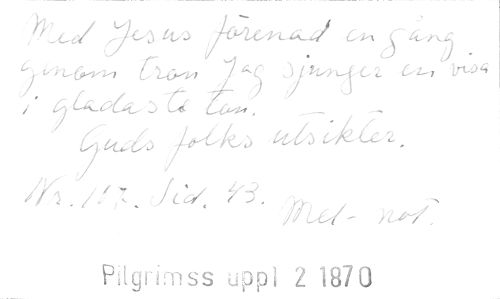 Med Jesus förenad en gång
genom tron Jag sjunger en visa
i gladaste ton.
Guds folks utsikter.
Nr. 167. Sid. 43.
Mel- not.
Pilgrimss uppl 2 1870